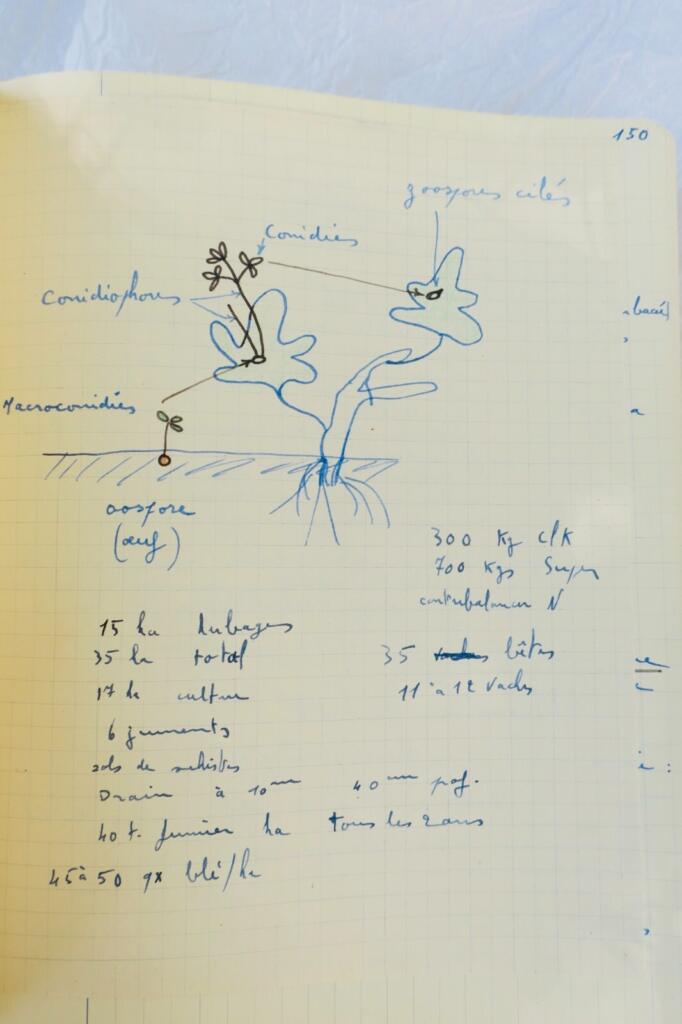 150
zoospores cilés
Conidies
Conidiophores
Macroconidies
oospore
(œuf)
300 Kg ClK
700 Kgs Super
contrebalancer N
15 ha herbages
35 ha total
35 bêtes
17 ha culture
11 à 12 vaches
6 juments
sols de schistes
Drain à 10
40 prof.
40 t. fumier ha tous les 2 ans
45 à 50 qx blé/ha